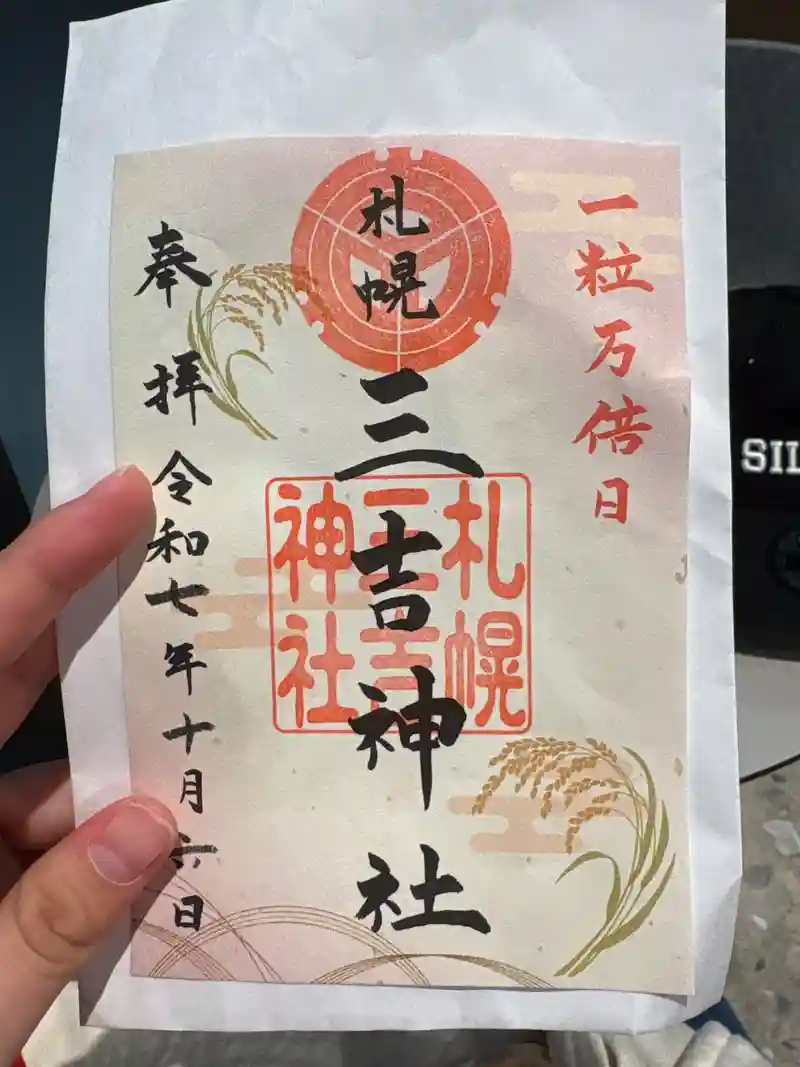 一粒万倍日
札幌三吉神社
札幌
三吉
神社
奉拝
令和七年十月六日
SIL